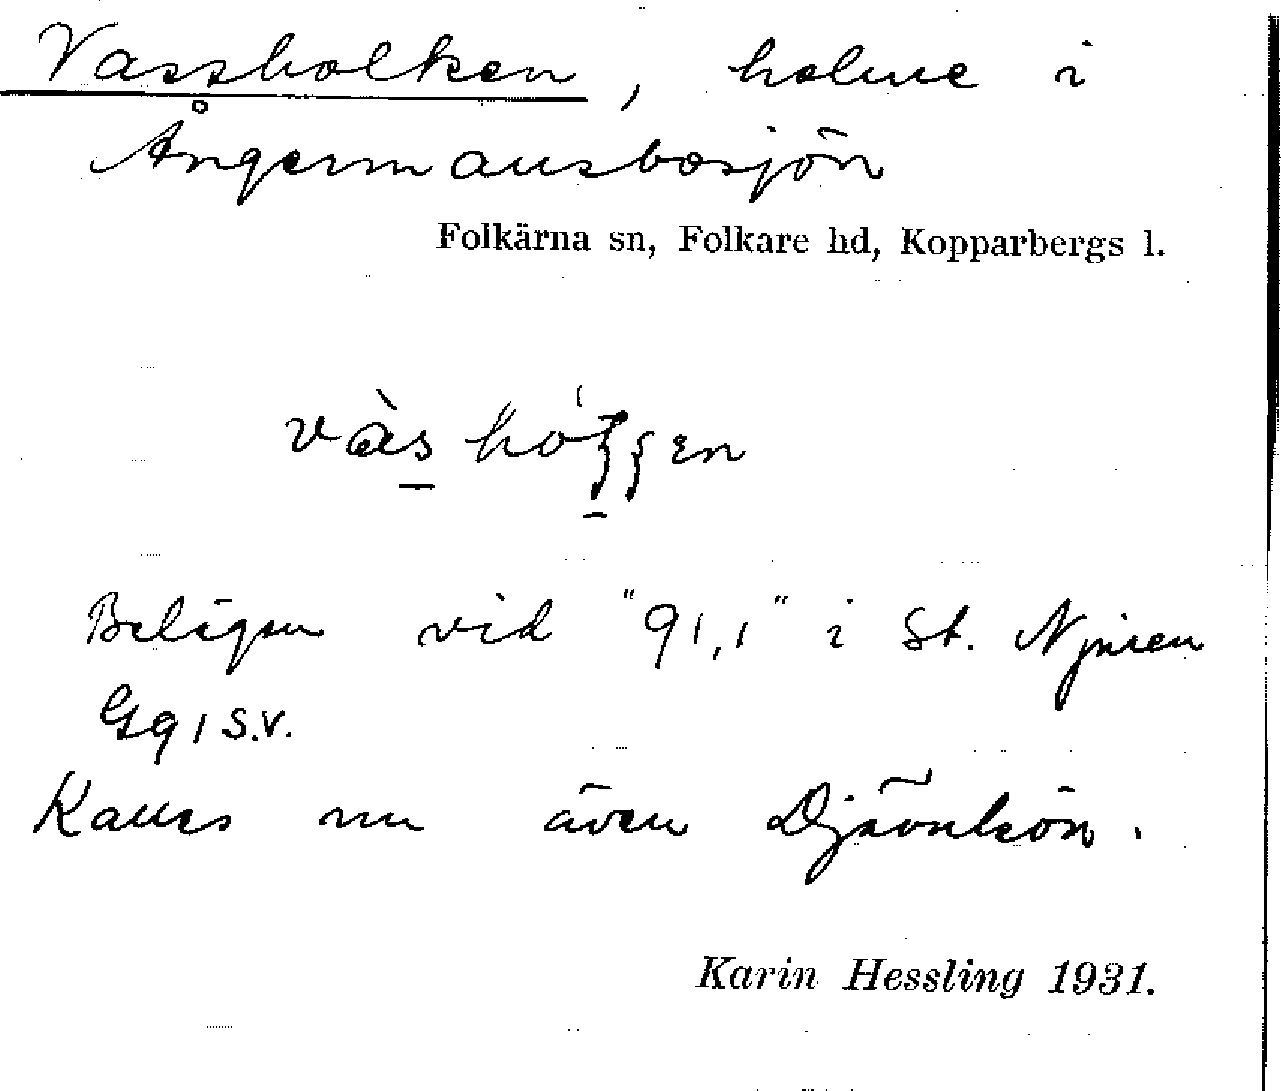 Vassholken, holme i
Ångermansbosjön
Folkärna sn, Folkare hd, Kopparbergs l.
Belägen vid "91,1" i St. Njuren
Gg 1 S.V.
Kallas nu även Djävulsön.
Karin Hessling 1931.